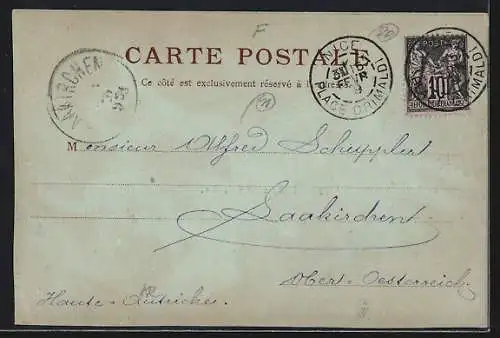 F
CARTE POSTALE
Ce côté est exclusivement réservé à l'adresse.
NICE
PLACE GRIMALDI
POSTE
10
Monsieur Alfred Schuppler
Laakirchen
Ober-Oesterreich
Haute-Autriche